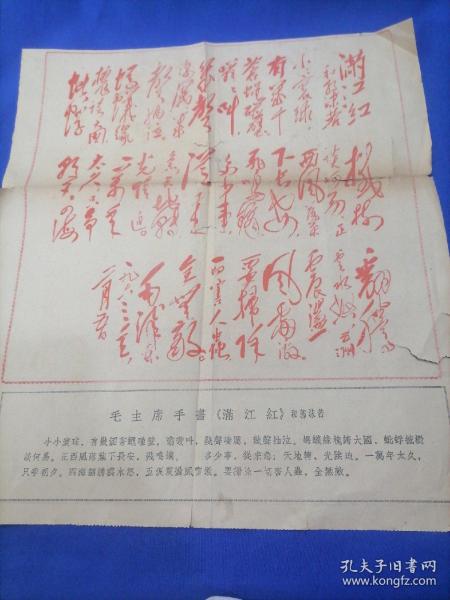 满江红
和郭沫若
小小寰球
有几个
苍蝇碰壁
嗡嗡叫
几声
凄厉
几声抽泣
蚂蚁缘
槐夸大国
蚍蜉
撼树
谈何易 正
西风落叶
下长安
飞鸣镝
多少事
从来
急 天地转
光阴迫
一万年
太久 只争
朝夕 四海
翻腾
云水怒 五洲
震荡
风雷激
要扫除
一切害人虫
全无敌
毛泽东
一九六三年
二月五日
毛主席手書《滿江紅》和郭沫若
小小寰球，有幾個蒼蠅碰壁。嗡嗡叫，幾聲凄厲，幾聲抽泣。螞蟻緣槐誇大國，蚍蜉撼樹
談何易。正西風落葉下長安，飛鳴鏑。　多少事，從來急；天地轉，光陰迫。一萬年太久，
只爭朝夕。四海翻騰雲水怒，五洲震蕩風雷激。要掃除一切害人蟲，全無敵。
孔夫子旧书网
www.kongfz.com